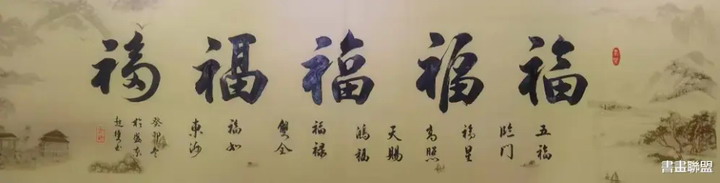 福福福福福
五福
临门
福星
高照
天賜
鴻福
福禄
雙全
福如
東海
癸卯冬
書畫聯盟